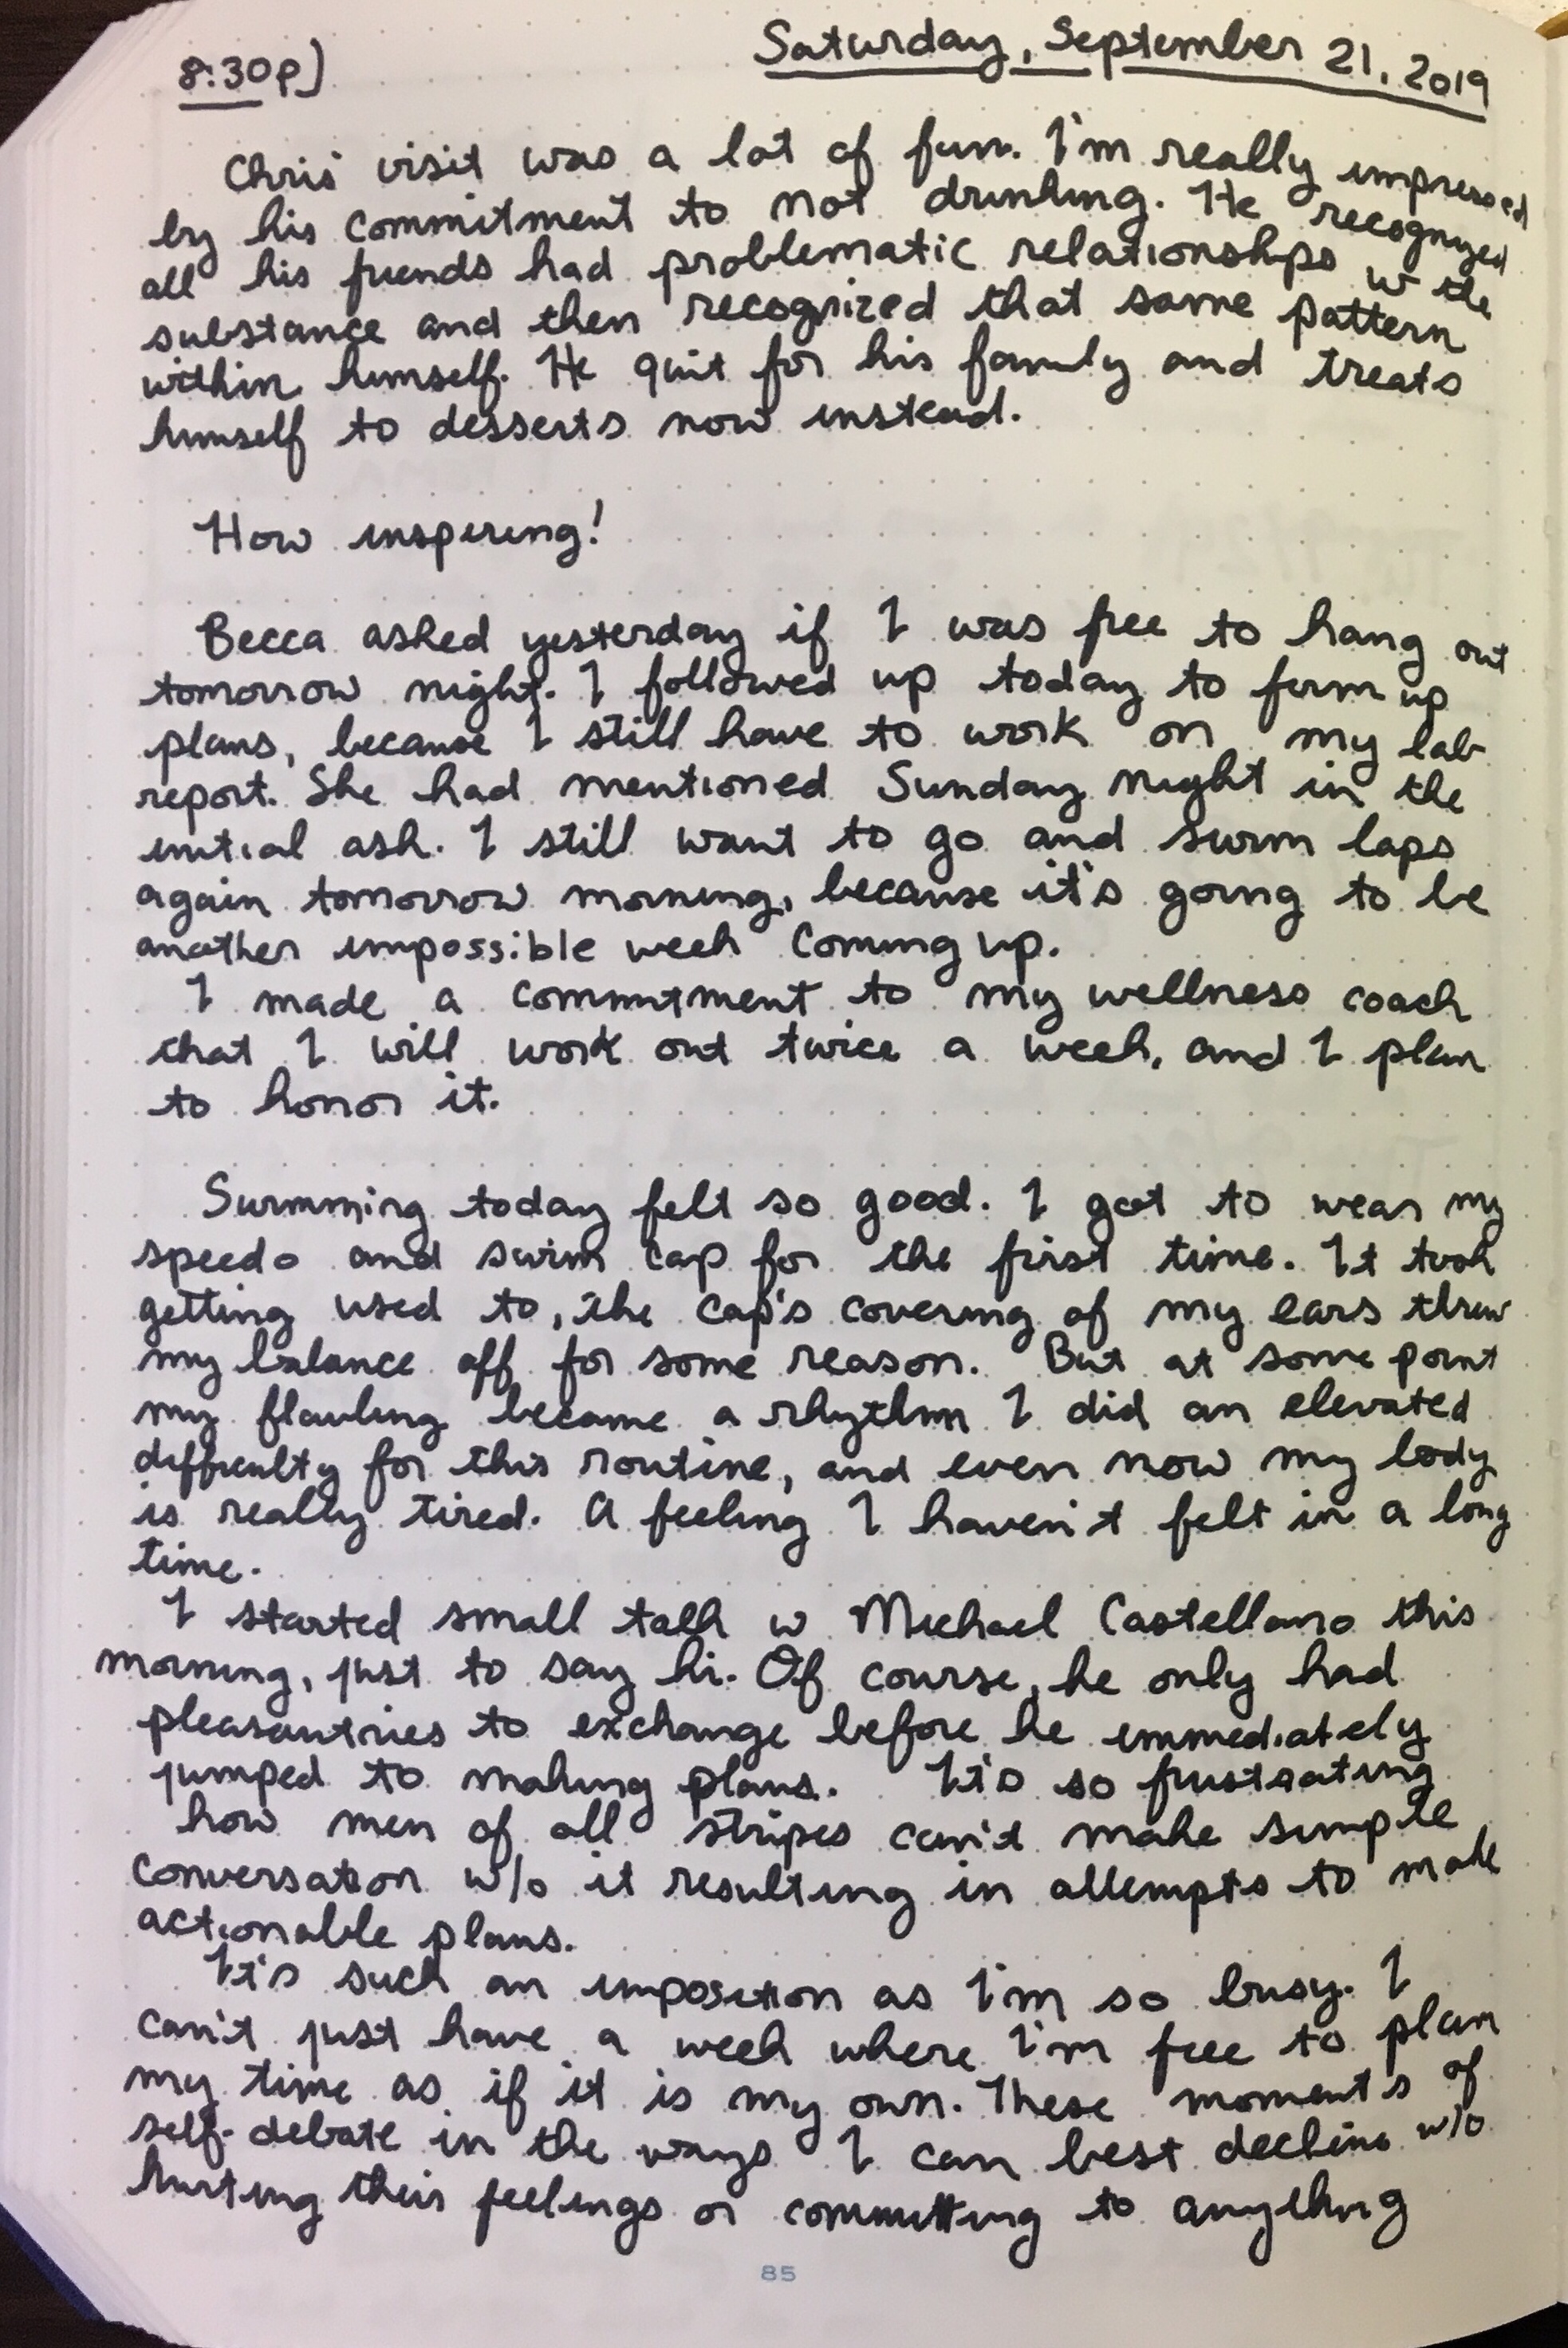 8:30p) Saturday, September 21, 2019
Chris' visit was a lot of fun. I'm really impressed
by his commitment to not drinking. He recognized
all his friends had problematic relationships w the
substance and then recognized that same pattern
within himself. He quit for his family and treats
himself to desserts now instead.
How inspiring!
Becca asked yesterday if I was free to hang out
tomorrow night. I followed up today to firm up
plans, because I still have to work on my lab
report. She had mentioned Sunday night in the
initial ask. I still want to go and swim laps
again tomorrow morning, because it's going to be
another impossible week coming up.
I made a commitment to my wellness coach
that I will work out twice a week, and I plan
to honor it.
Swimming today felt so good. I got to wear my
speedo and swim cap for the first time. It took
getting used to, the cap's covering of my ears threw
my balance off for some reason. But at some point
my flailing became a rhythm I did an elevated
difficulty for this routine, and even now my body
is really tired. A feeling I haven't felt in a long
time.
I started small talk w Michael Castellano this
morning, just to say hi. Of course, he only had
pleasantries to exchange before he immediately
jumped to making plans. It's so frustrating
how men of all stripes can't make simple
conversation w/o it resulting in attempts to make
actionable plans.
It's such an imposition as I'm so busy. I
can't just have a week where I'm free to plan
my time as if it is my own. These moments of
self-debate in the ways I can best decline w/o
hurting their feelings or committing to anything
85